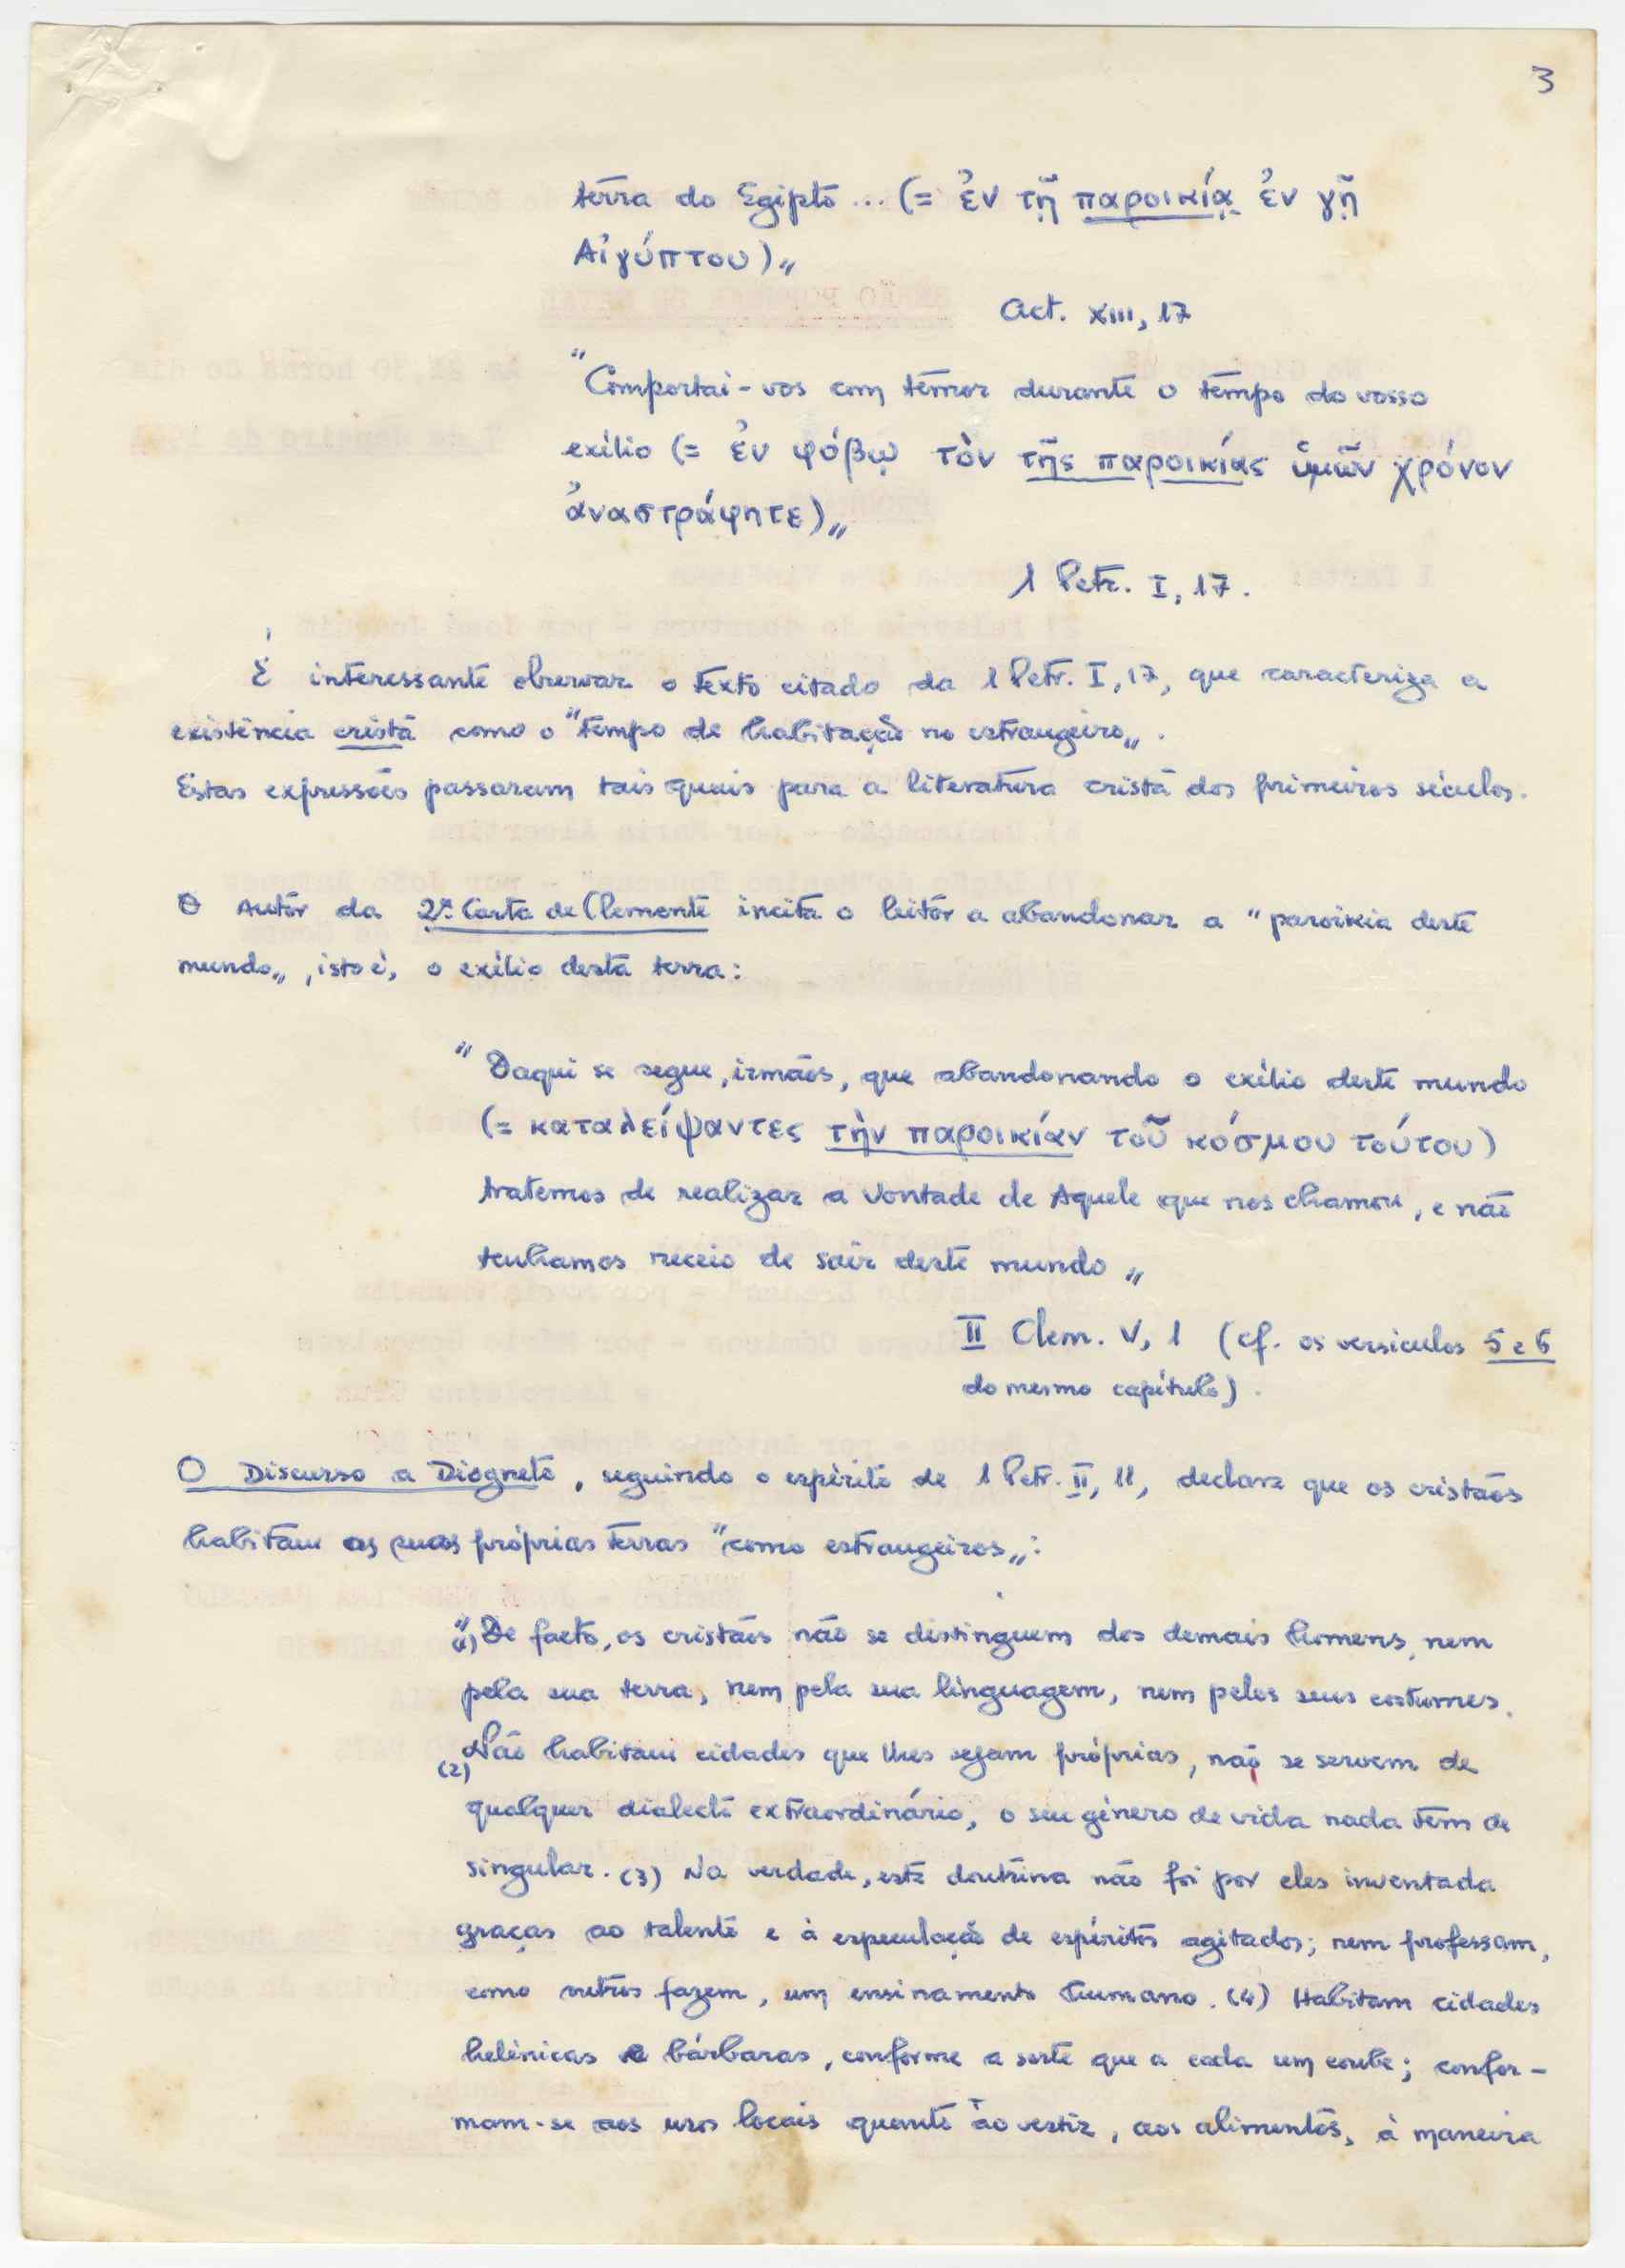 3
terra do Egipto ... (= ἐν τῇ παροικίᾳ ἐν γῇ
Αἰγύπτου)„
Act. XIII, 17
"Comportai-vos com temor durante o tempo do vosso
exílio (= ἐν φόβῳ τὸν τῆς παροικίας ὑμῶν χρόνον
ἀναστράφητε)„
1 Petr. I, 17.
É interessante observar o texto citado da 1 Petr. I, 17, que caracteriza a
existência cristã como o "tempo de habitação no estrangeiro„.
Estas expressões passaram tais quais para a literatura cristã dos primeiros séculos.
O Autor da 2ª Carta de Clemente incita o leitor a abandonar a "paroikia deste
mundo„, isto é, o exílio desta terra:
"Daqui se segue, irmãos, que abandonando o exílio deste mundo
(= καταλείψαντες τὴν παροικίαν τοῦ κόσμου τούτου)
tratemos de realizar a Vontade de Aquele que nos chamou, e não
tenhamos receio de sair deste mundo„
II Clem. V, 1 (cf. os versículos 5 e 6
do mesmo capítulo).
O Discurso a Diogneto, seguindo o espírito de 1 Petr. II, 11, declara que os cristãos
habitam as suas próprias terras "como estrangeiros„:
"(1) De facto, os cristãos não se distinguem dos demais homens, nem
pela sua terra, nem pela sua linguagem, nem pelos seus costumes.
(2) Não habitam cidades que lhes sejam próprias, não se servem de
qualquer dialecto extraordinário, o seu género de vida nada tem de
singular. (3) Na verdade, esta doutrina não foi por eles inventada
graças ao talento e à especulação de espíritos agitados; nem professam,
como outros fazem, um ensinamento humano. (4) Habitam cidades
helénicas e bárbaras, conforme a sorte que a cada um coube; confor-
mam-se aos usos locais quanto ao vestir, aos alimentos, à maneira